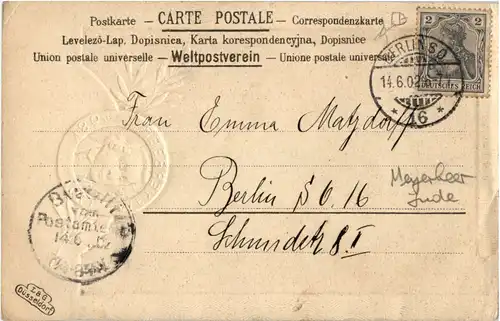 Postkarte – CARTE POSTALE – Correspondenzkarte
Levelező-Lap, Dopisnica, Karta korespondencyjna, Dopisnice
Union postale universelle – Weltpostverein – Unione postale universale
2 2
DEUTSCHES REICH
BERLIN SO
14.6.02
16
Frau Emma Matzdorff
Berlin S O. 16
Schmidstr. 8 I
Meyerheer
Jude
Bestellt
vom
Postamte
14.6.02
L & G
Düsseldorf